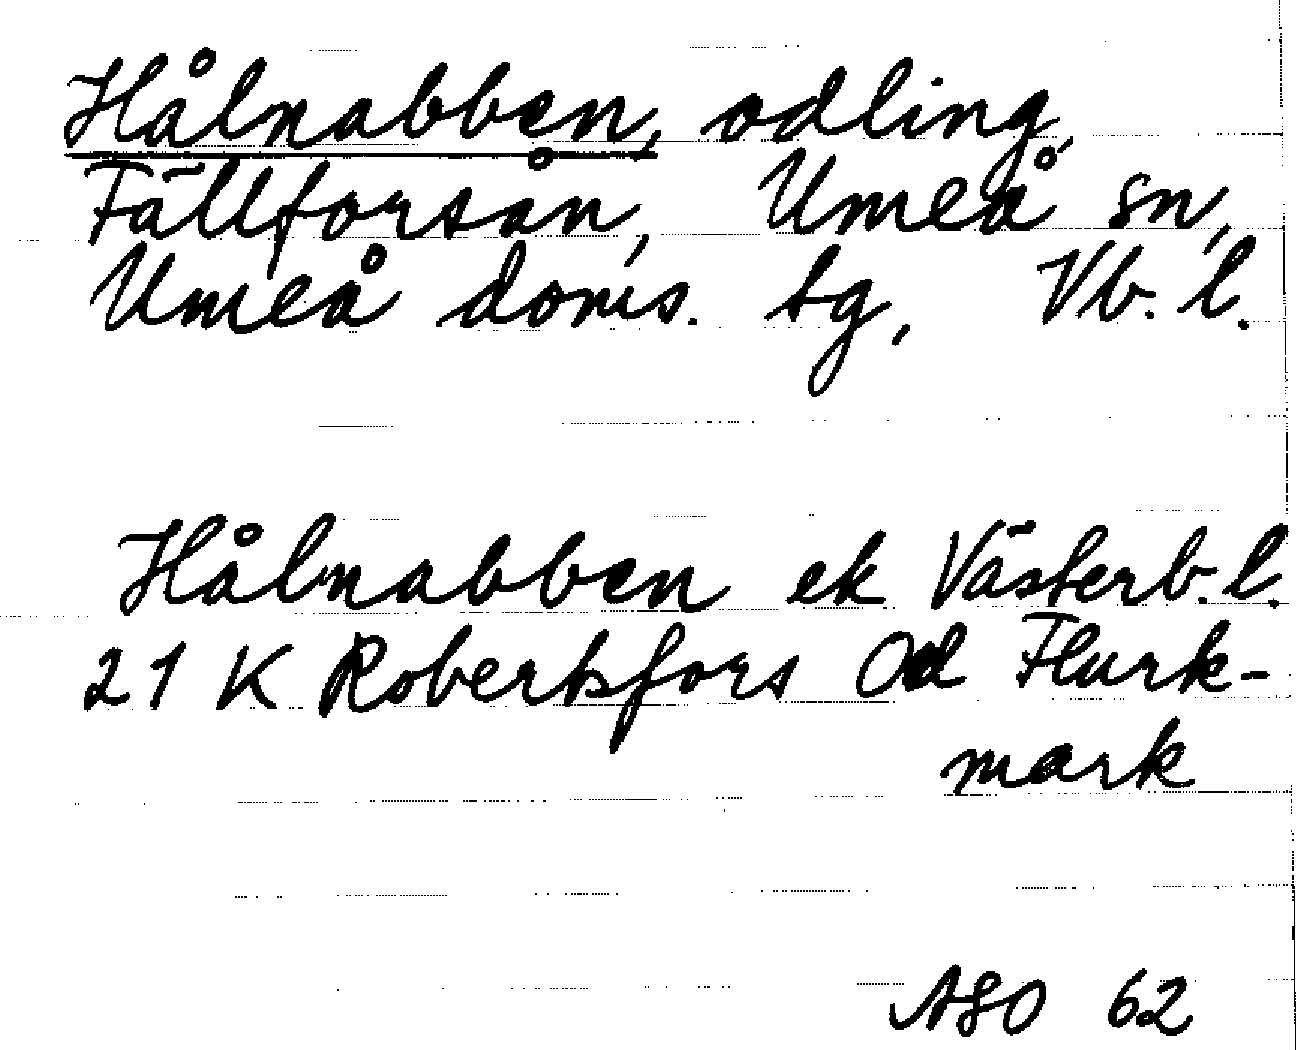 Hålnabben, odling,
Fällforsån, Umeå sn,
Umeå doms. tg, Vb. l.
Hålnabben ek Västerb. l.
21 K Robertsfors Od Flurk-
mark
ASO 62